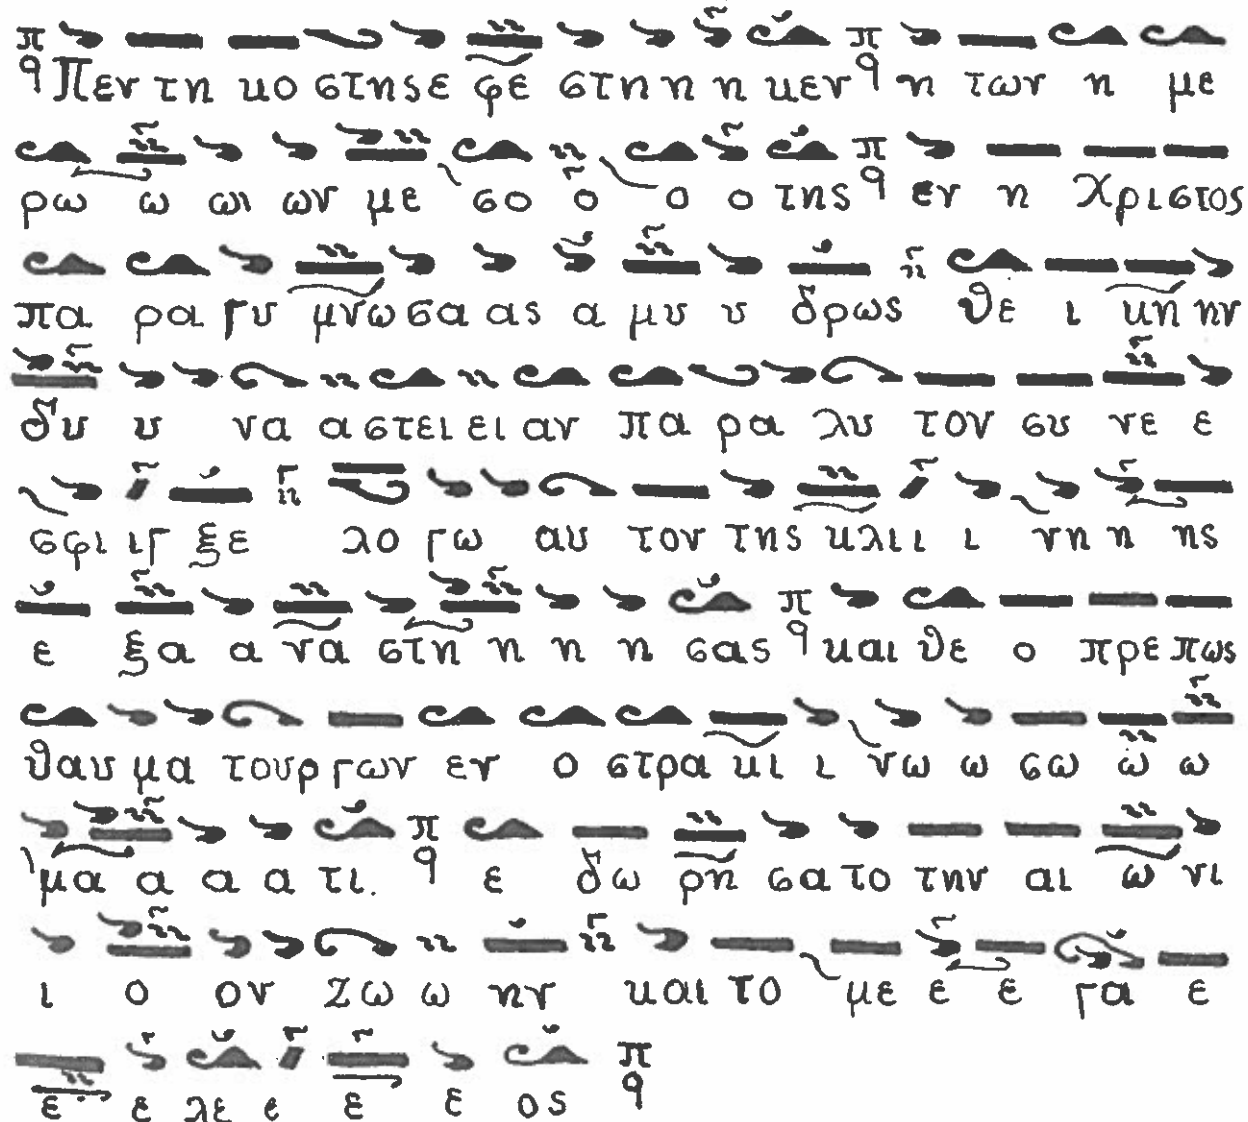 Πεν τη κο στης ε φε στη η η κεν η των η με
ρω ω ωι ων με σο ο ο ο της εν η Χριστος
πα ρα γυ μνω σα ας α μυ υ δρως θε ι κη ην
δυ υ να α στει ει αν πα ρα λυ τον συ νε ε
σφι ιγ ξε λο γω αυ τον της κλι ι ι νη η ης
ε ξα α να στη η η η σας και θε ο πρε πως
θαυ μα τουρ γων εν ο στρα κι ι νω ω σω ω ω
μα α α α τι. ε δω ρη σα το την αι ω νι
ι ο ον ζω ω ην και το με ε ε γα ε
ε ε λε ε ε ε ος